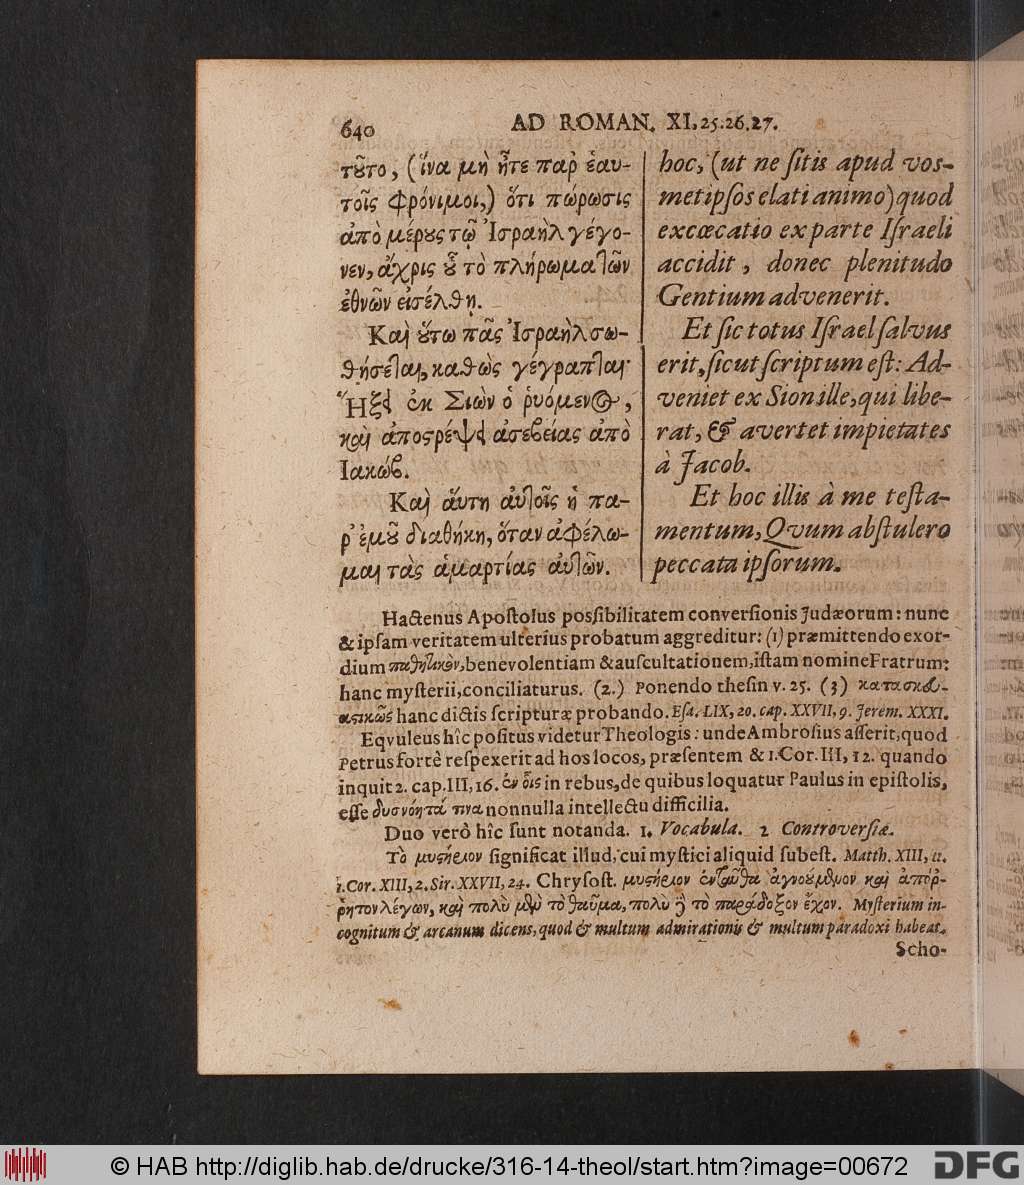 640
AD ROMAN. XI, 25.26.27.
τȣ͂το, (ἵνα μὴ ἦτε παρ ἑαυ-
τοῖς φρόνιμοι,) ὅτι πώρωσις
ἀπὸ μέρȣς τῷ Ἰσραὴλ γέγο-
νεν, ἄχρις ȣ̔͂ τὸ πλήρωμα τῶν
ἐθνῶν εἰσέλθῃ.
Καὶ ȣ̔́τω πᾶς Ἰσραὴλ σω-
θήσεται, καθὼς γέγραπται·
Ἥξει ἐκ Σιὼν ὁ ῥυόμενος,
καὶ ἀποστρέψει ἀσεβείας ἀπὸ
Ιακώβ.
Καὶ ἅυτη ἀυτοῖς ἡ πα-
ρ' ἐμȣ͂ διαθήκη, ὅταν ἀφέλω-
μαι τὰς ἁμαρτίας ἀυτῶν.
hoc, (ut ne ſitis apud vos-
metipſos elati animo) quod
excæcatio ex parte Iſraeli
accidit, donec plenitudo
Gentium advenerit.
Et ſic totus Iſrael ſalvus
erit, ſicut ſcriptum eſt: Ad-
veniet ex Sion ille, qui libe-
rat, & avertet impietates
à Jacob.
Et hoc illis à me teſta-
mentum, Qvum abſtulero
peccata ipſorum.
Hactenus Apoſtolus poſsibilitatem converſionis Judæorum: nunc
& ipſam veritatem ulterius probatum aggreditur: (1) præmittendo exor-
dium παθητικὸν, benevolentiam & auſcultationem, iſtam nomine Fratrum:
hanc myſterii, conciliaturus. (2.) Ponendo theſin v. 25. (3) κατασκευ-
αστικῶς hanc dictis ſcripturæ probando. Eſa. LIX, 20. cap. XXVII, 9. Jerem. XXXI.
Eqvuleus hîc poſitus videtur Theologis: unde Ambroſius aſſerit, quod
Petrus fortè reſpexerit ad hos locos, præſentem & 1. Cor. III, 12. quando
inquit 2. cap. III, 16. ἐν οἷς in rebus, de quibus loquatur Paulus in epiſtolis,
eſſe δυσνόητά τινα nonnulla intellectu difficilia.
Duo verò hîc ſunt notanda. 1. Vocabula. 2 Controverſiæ.
Τὸ μυστήριον ſignificat illud, cui myſtici aliquid ſubeſt. Matth. XIII, 11.
1. Cor. XIII, 2. Sir. XXVII, 24. Chryſoſt. μυστήριον ἐνταῦθα ἀγνούμενον καὶ ἀπόρ-
ῥητον λέγων, καὶ πολὺ μὲν τὸ θαῦμα, πολὺ δὲ τὸ παράδοξον ἔχον. Myſterium in-
cognitum & arcanum dicens, quod & multum admirationis & multum paradoxi habeat.
Scho-
© HAB http://diglib.hab.de/drucke/316-14-theol/start.htm?image=00672
DFG